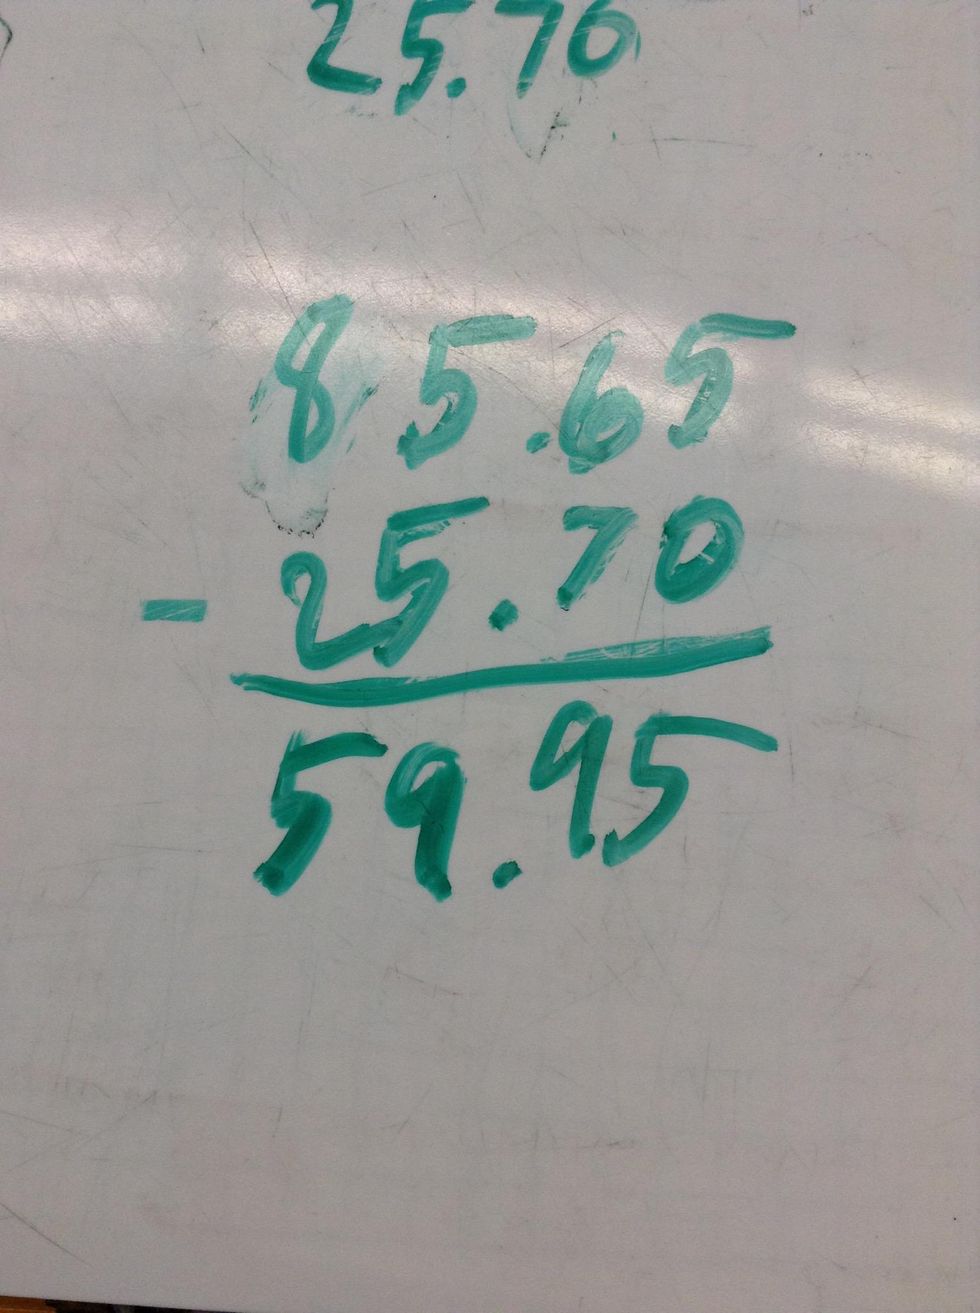 25.70
85.65
- 25.70
59.95